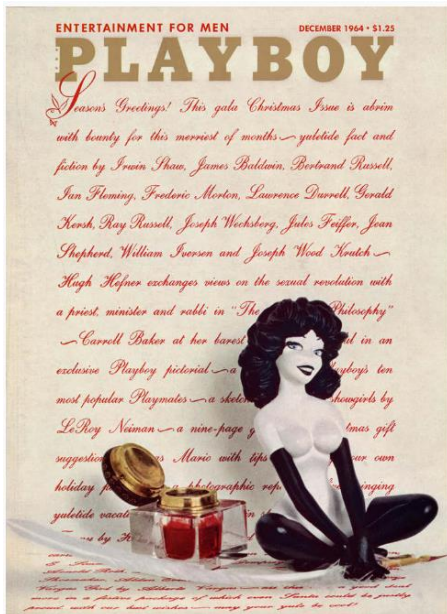 ENTERTAINMENT FOR MEN
DECEMBER 1964 • $1.25
PLAYBOY
Season's Greetings! This gala Christmas Issue is abrim
with bounty for this merriest of months—yuletide fact and
fiction by Irwin Shaw, James Baldwin, Bertrand Russell,
Ian Fleming, Frederic Morton, Lawrence Durrell, Gerald
Kersh, Ray Russell, Joseph Wechsberg, Jules Feiffer, Jean
Shepherd, William Iversen and Joseph Wood Krutch—
Hugh Hefner exchanges views on the sexual revolution with
a priest, minister and rabbi in "The Philosophy"
—Carroll Baker at her barest in an
exclusive Playboy pictorial—a layboy's ten
most popular Playmates—a sketch howgirls by
LeRoy Neiman—a nine-page tmas gift
suggestion Mario with tips our own
holiday photographic rep inging
yuletide vacat
by
most in a festive package of which even Santa could be justly
proud, with our best wishes—may you gete le cort!